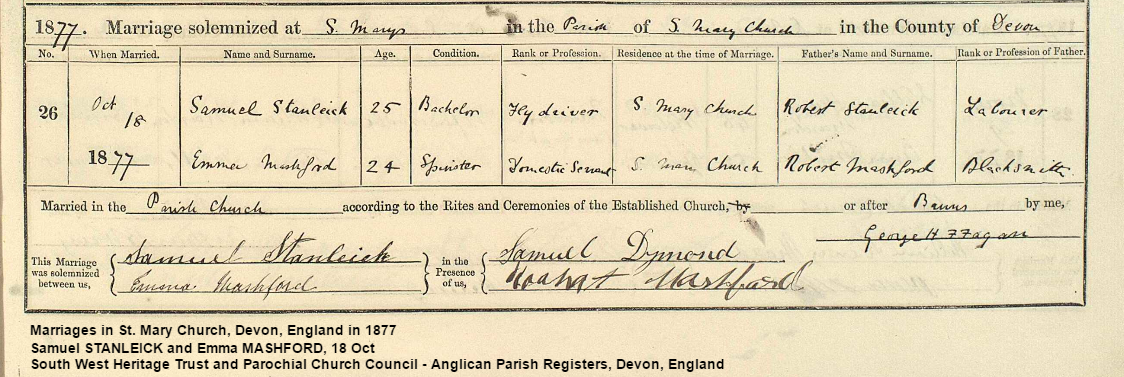 1877. Marriage solemnized at S. Marys in the Parish of S. Mary Church in the County of Devon
No. When Married. Name and Surname. Age. Condition. Rank or Profession. Residence at the time of Marriage. Father's Name and Surname. Rank or Profession of Father.
Oct
26 18 Samuel Stanleick 25 Bachelor Fly driver S. Mary Church Robert Stanleick Labourer
1877 Emma Mashford 24 Spinster Domestic Servant S. Mary Church Robert Mashford Blacksmith
Married in the Parish Church according to the Rites and Ceremonies of the Established Church, by or after Banns by me,
George H
This Marriage was solemnized between us,
Samuel Stanleick
Emma Mashford
in the Presence of us,
Samuel Dymond
Mashford
Marriages in St. Mary Church, Devon, England in 1877
Samuel STANLEICK and Emma MASHFORD, 18 Oct
South West Heritage Trust and Parochial Church Council - Anglican Parish Registers, Devon, England